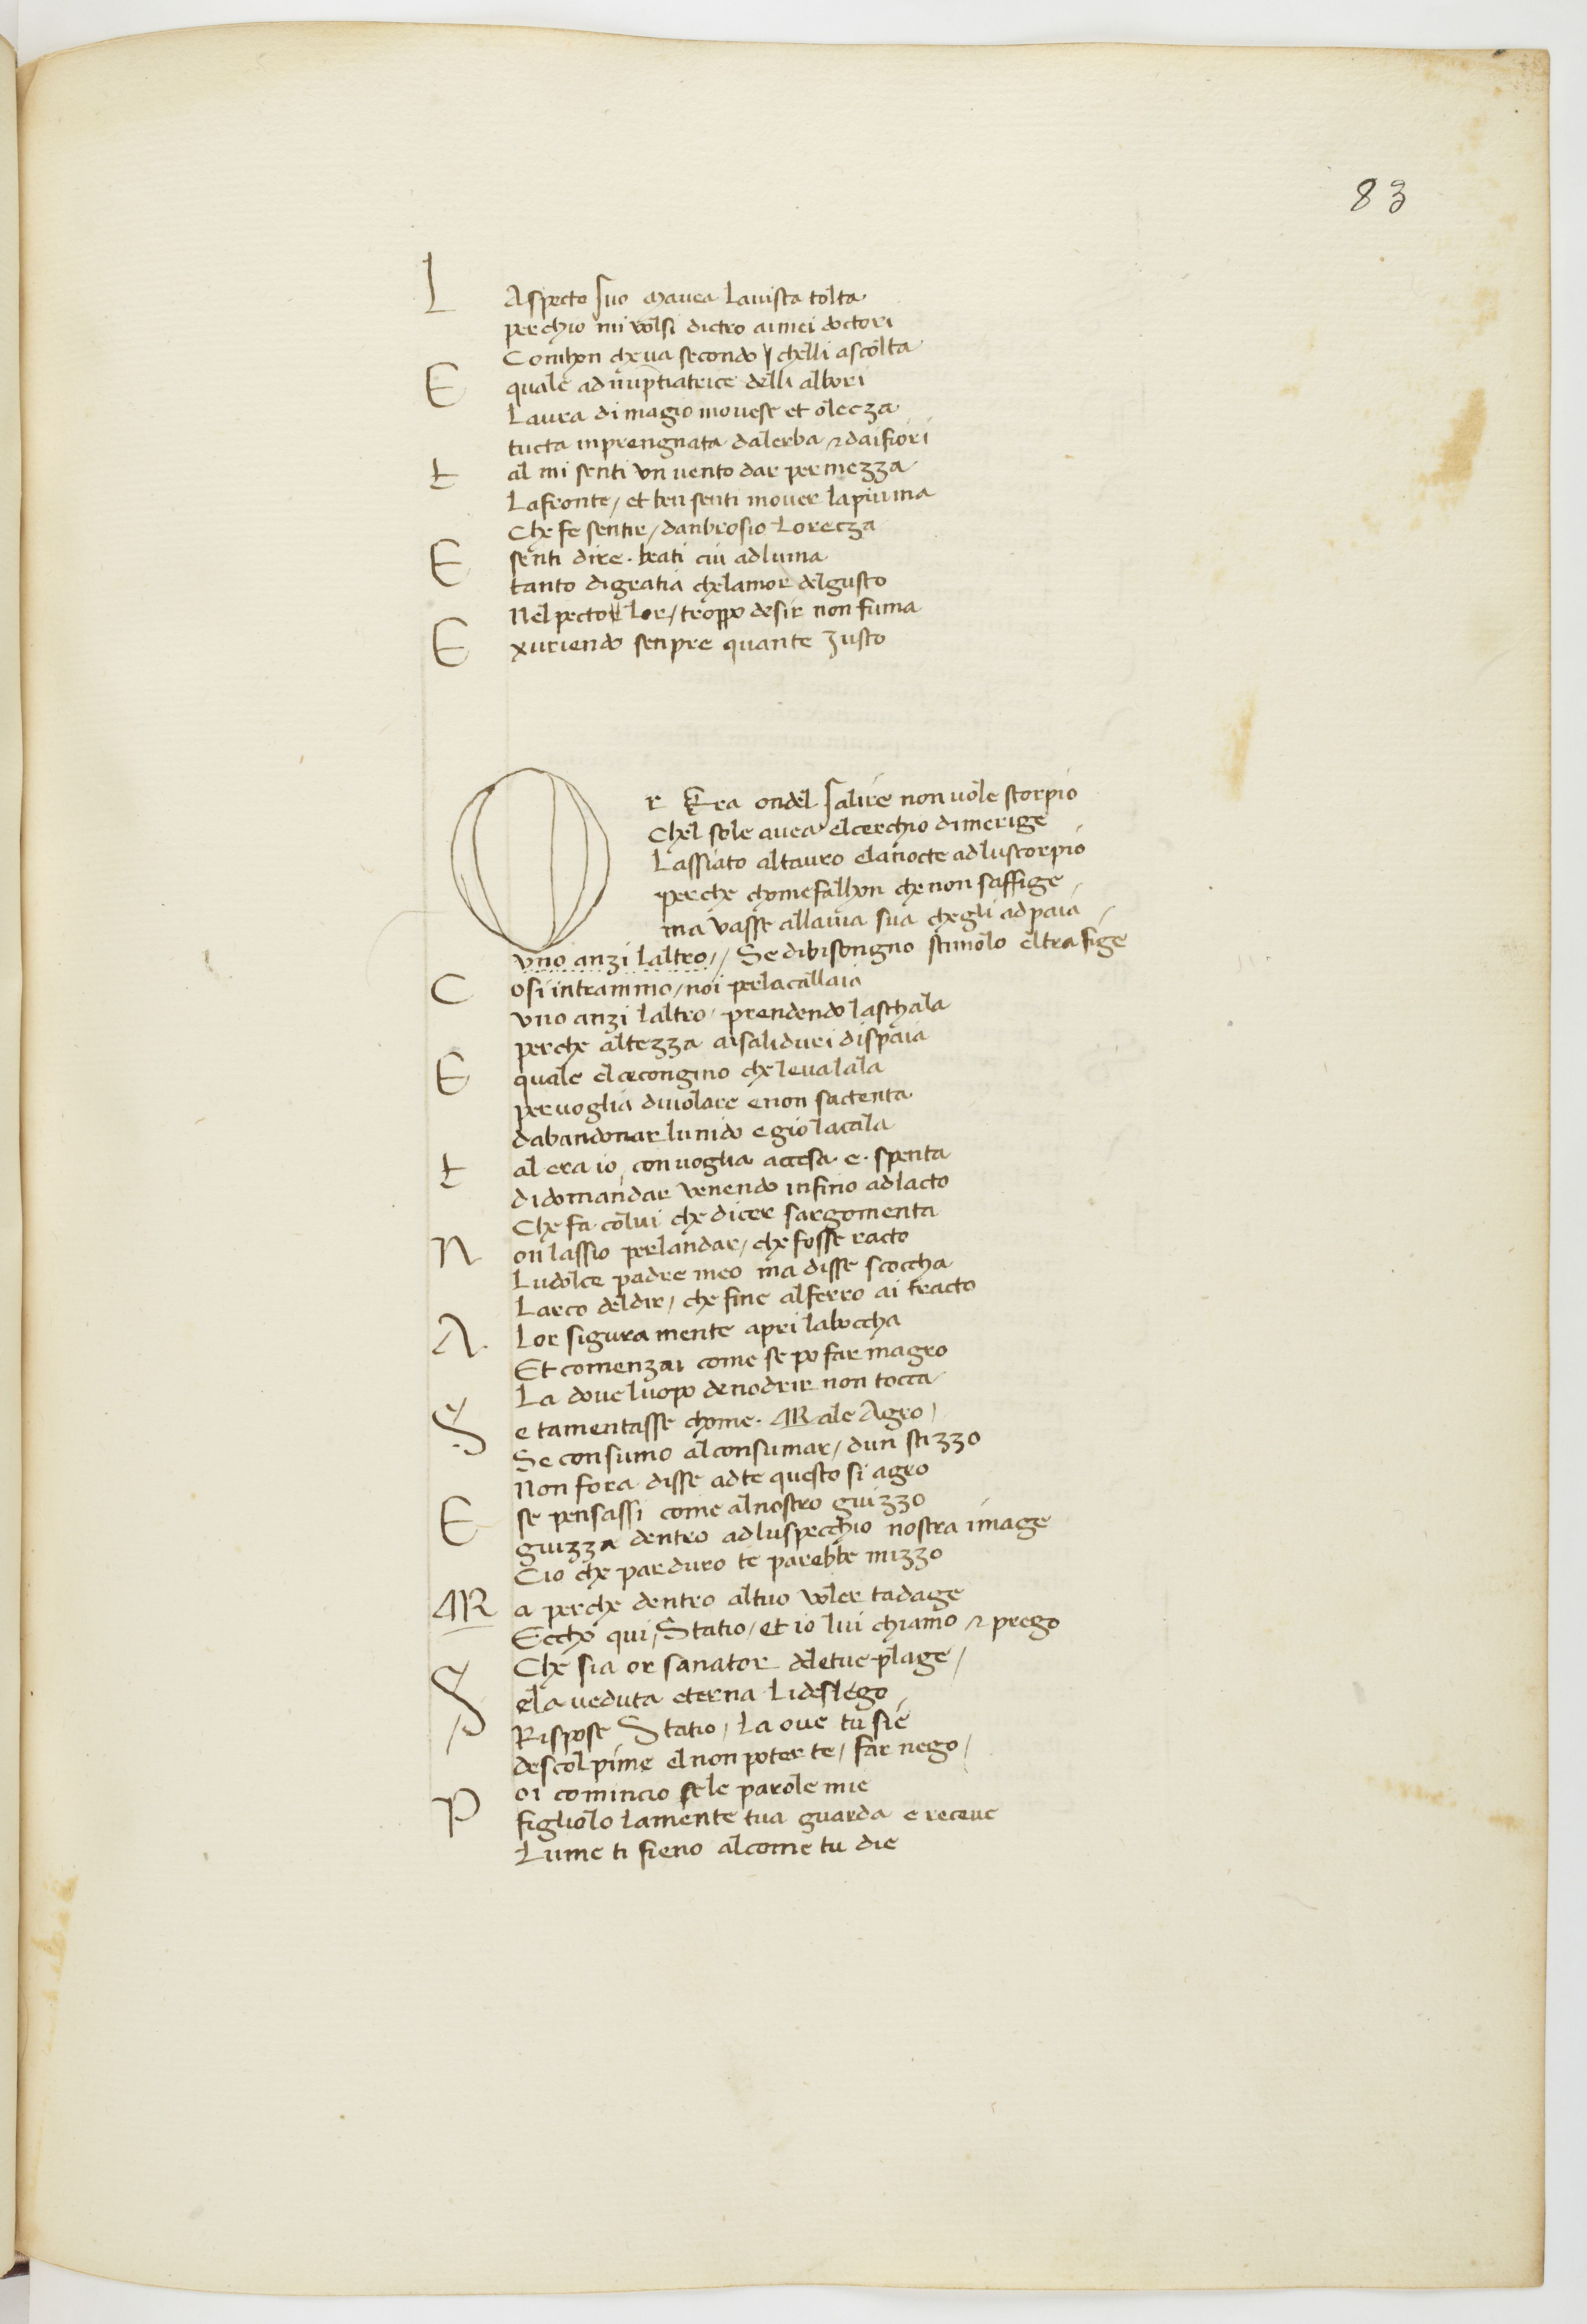 83
L Aspecto suo mauea lauista tolta
perchio mi volsi dietro aimei doctori
Comhon che ua secondo chelli ascolta
E quale ad nuptiatrice delli albori
Laura di magio mouese et olecza
tucta inprengnata dalerba & dai fiori
t al mi senti vn uento dar per mezza
Lafronte / et ben senti mouer lapiuma
Che fe sentir / danbrosio Lorecza
E senti dire . beati cui adluma
tanto digratia chelamor delgusto
Nel pecto lor / troppo desir non fuma
E xuriendo senpre quante zusto
O r Era ondel salire non uole storpio
Chel sole auea elcerchio dimerige
Lassiato altauro elanocte adluscorpio
perche chomefalhon che non saffige
ma vasse allauia sua chegli adpaia
vno anzi laltro // Se dibisongno stimolo eltrafige
C osi intrammo / noi perlacallaia
vno anzi laltro / prendendo laschala
perche altezza aisaliduri dispaia
E quale elcecongino che leualala
peruoglia diuolare enon sactenta
dabandonar lunido egio lacala
t al era io con uoglia accesa . e . spenta
didomandar venendo infino adlacto
Che fa colui che dicer sargomenta
N on lassio perlandar / che fosse racto
Ludolce padre meo ma disse scoccha
Larco deldir / che fine alferro ai tracto
A Lor siguramente apri laboccha
Et comenzai come se po far magro
La doue luopo denodrir non tocca
S e tamentasse chome . Male Agro /
Se consumo alconsumar / dun stizzo
Non fora disse adte questo si agro
E se pensassi come alnostro guizzo
guizza dentro adluspecchio nostra image
Cio che parduro te parebbe mizzo
M a perche dentro altuo voler tadage
Eccho qui / Statio / et io lui chiamo & prego
Che sia or sanator deletue plage /
S ela veduta eterna lideslego
Rispose Statio / la oue tu sie
descolpime elnon poter te / far nego /
P oi comincio sele parole mie
figliolo lamente tua guarda e receue
Lume ti fieno alcome tu die